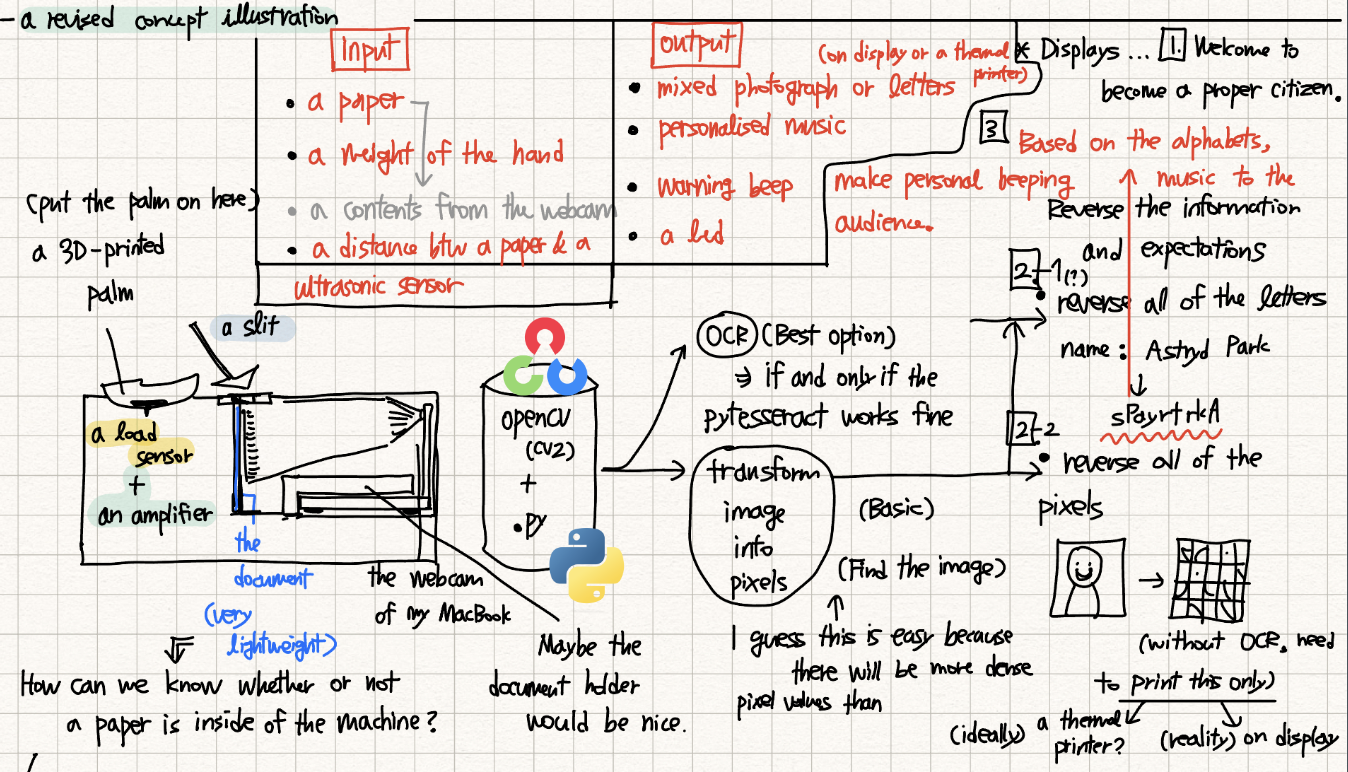 - a revised concept illustration
Input
• a paper
• a weight of the hand
• a contents from the webcam
• a distance btw a paper & a
ultrasonic sensor
output
(on display or a thermal
printer)
• mixed photograph or letters
• personalised music
• warning beep
• a led
* Displays ... 1. Welcome to
become a proper citizen.
3 Based on the alphabets,
make personal beeping music to the
audience.
Reverse the information
and expectations
2-1 (?)
• reverse all of the letters
name : Astryd Park
sPayrtrkA
2-2
• reverse all of the
pixels
(without OCR, need
to print this only)
(ideally) a thermal
printer?
(reality) on display
(put the palm on here)
a 3D-printed
palm
a slit
a load
sensor
+
an amplifier
the
document
(very
lightweight)
the webcam
of my MacBook
How can we know whether or not
a paper is inside of the machine?
openCV
(cv2)
+
.py
Maybe the
document holder
would be nice.
OCR (Best option)
⇒ if and only if the
pytesseract works fine
transform
image
info
pixels
(Basic)
(Find the image)
I guess this is easy because
there will be more dense
pixel values than